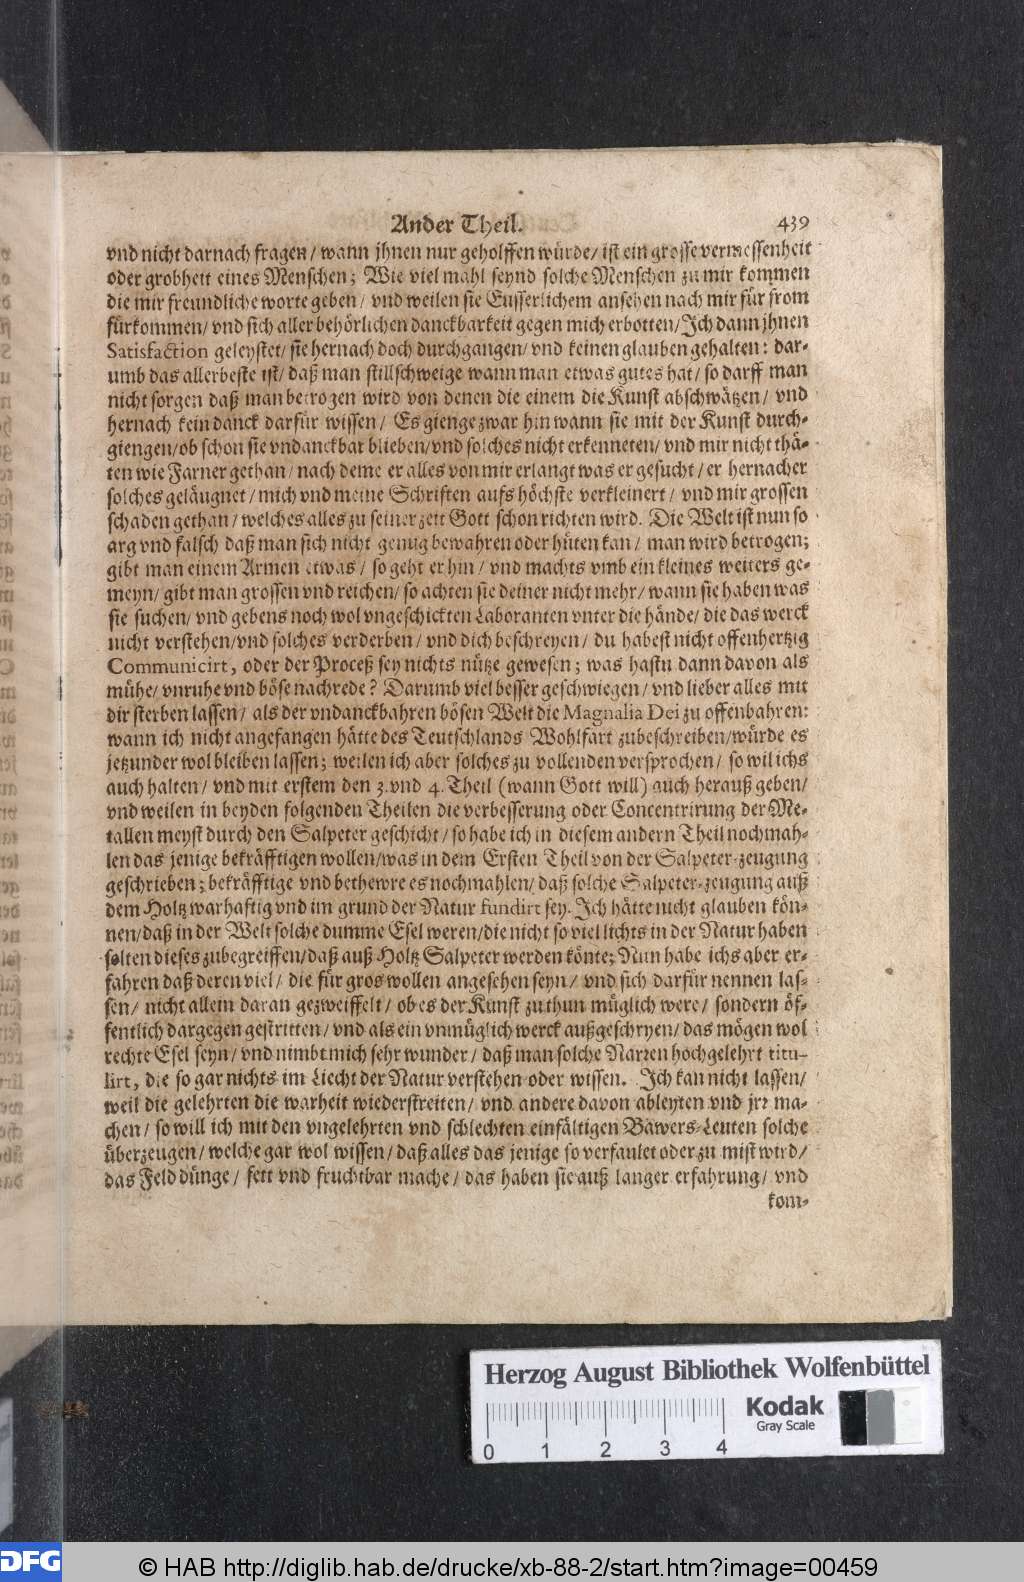 Ander Theil. 439
vnd nicht darnach fragen / wann jhnen nur geholffen würde / ist ein grosse vermessenheit
oder grobheit eines Menschen; Wie viel mahl seynd solche Menschen zu mir kommen
die mir freundliche worte geben / vnd weilen sie Eusserlichem ansehen nach mir für from
fürkommen / vnd sich aller behörlichen danckbarkeit gegen mich erbotten / Ich dann jhnen
Satisfaction geleystet / sie hernach doch durchgangen / vnd keinen glauben gehalten: dar-
umb das allerbeste ist / daß man stillschweige wann man etwas gutes hat / so darff man
nicht sorgen daß man betrogen wird von denen die einem die Kunst abschwätzen / vnd
hernach kein danck darfür wissen / Es gienge zwar hin wann sie mit der Kunst durch-
giengen / ob schon sie vndanckbar blieben / vnd solches nicht erkenneten / vnd mir nicht thä-
ten wie Farner gethan / nach deme er alles von mir erlangt was er gesucht / er hernacher
solches geläugnet / mich vnd meine Schriften aufs höchste verkleinert / vnd mir grossen
schaden gethan / welches alles zu seiner zeit Gott schon richten wird. Die Welt ist nun so
arg vnd falsch daß man sich nicht genug bewahren oder hüten kan / man wird betrogen;
gibt man einem Armen etwas / so geht er hin / vnd machts vmb ein kleines weiters ge-
meyn / gibt man grossen vnd reichen / so achten sie deiner nicht mehr / wann sie haben was
sie suchen / vnd gebens noch wol vngeschickten Laboranten vnter die hände / die das werck
nicht verstehen / vnd solches verderben / vnd dich beschreyen / du habest nicht offenhertzig
Communicirt, oder der Proceß sey nichts nütze gewesen; was hastu dann davon als
mühe / vnruhe vnd böse nachrede? Darumb viel besser geschwiegen / vnd lieber alles mit
dir sterben lassen / als der vndanckbahren bösen Welt die Magnalia Dei zu offenbahren:
wann ich nicht angefangen hätte des Teutschlands Wohlfart zubeschreiben / würde es
jetzunder wol bleiben lassen; weilen ich aber solches zu vollenden versprochen / so wil ichs
auch halten / vnd mit erstem den 3. vnd 4. Theil (wann Gott will) auch herauß geben /
vnd weilen in beyden folgenden Theilen die verbesserung oder Concentrirung der Me-
tallen meyst durch den Salpeter geschicht / so habe ich in diesem andern Theil nochmah-
len das jenige bekräfftigen wollen / was in dem Ersten Theil von der Salpeter-zeugung
geschrieben; bekräfftige vnd bethewre es nochmahlen / daß solche Salpeter-zeugung auß
dem Holtz warhaftig vnd im grund der Natur fundirt sey. Ich hätte nicht glauben kön-
nen / daß in der Welt solche dumme Esel weren / die nicht so viel lichts in der Natur haben
solten dieses zubegreiffen / daß auß Holtz Salpeter werden könte; Nun habe ichs aber er-
fahren daß deren viel / die für gros wollen angesehen seyn / vnd sich darfür nennen las-
sen / nicht allein daran gezweiffelt / ob es der Kunst zu thun müglich were / sondern öf-
fentlich dargegen gestritten / vnd als ein vnmüglich werck außgeschryen / das mögen wol
rechte Esel seyn / vnd nimbt mich sehr wunder / daß man solche Narren hochgelehrt titu-
lirt, die so gar nichts im Liecht der Natur verstehen oder wissen. Ich kan nicht lassen /
weil die gelehrten die warheit wiederstreiten / vnd andere davon ableyten vnd jrr ma-
chen / so will ich mit den vngelehrten vnd schlechten einfältigen Bawers-Leuten solche
überzeugen / welche gar wol wissen / daß alles das jenige so verfaulet oder zu mist wird /
das Feld dünge / fett vnd fruchtbar mache / das haben sie auß langer erfahrung / vnd
kom-
Herzog August Bibliothek Wolfenbüttel
Kodak
Gray Scale
0 1 2 3 4
DFG
© HAB http://diglib.hab.de/drucke/xb-88-2/start.htm?image=00459